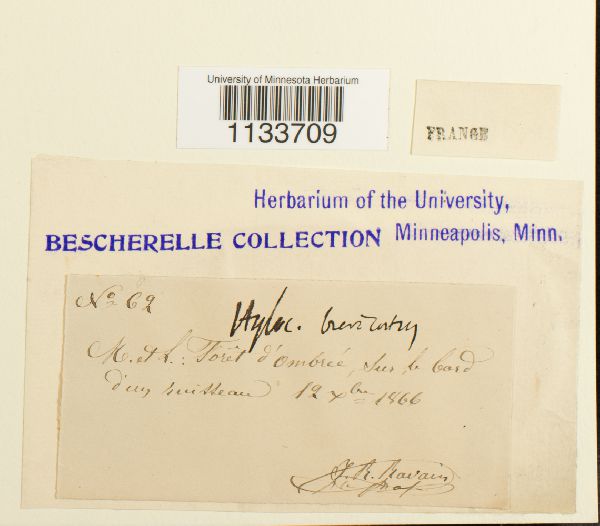 University of Minnesota Herbarium
1133709
FRANCE
Herbarium of the University,
BESCHERELLE COLLECTION Minneapolis, Minn.
No 62
Hyloc. brevirostrum
M. et L.: Forêt d'Ombrée, sur le bord
d'un ruisseau 12 xbre 1866